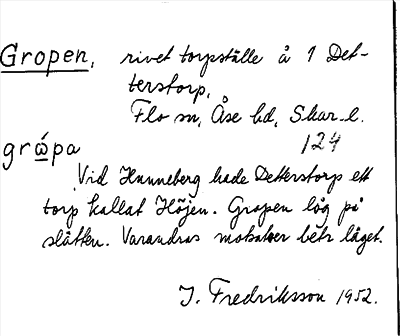 Gropen, rivet torpställe å 1 Det-
terstorp,
Flo sn, Åse hd, Skar. l.
grώpa 124
Vid Hunneberg hade Detterstorp ett
torp kallat Höjen. Gropen låg på
slätten. Varandras motsatser betr läget.
I. Fredriksson 1952.